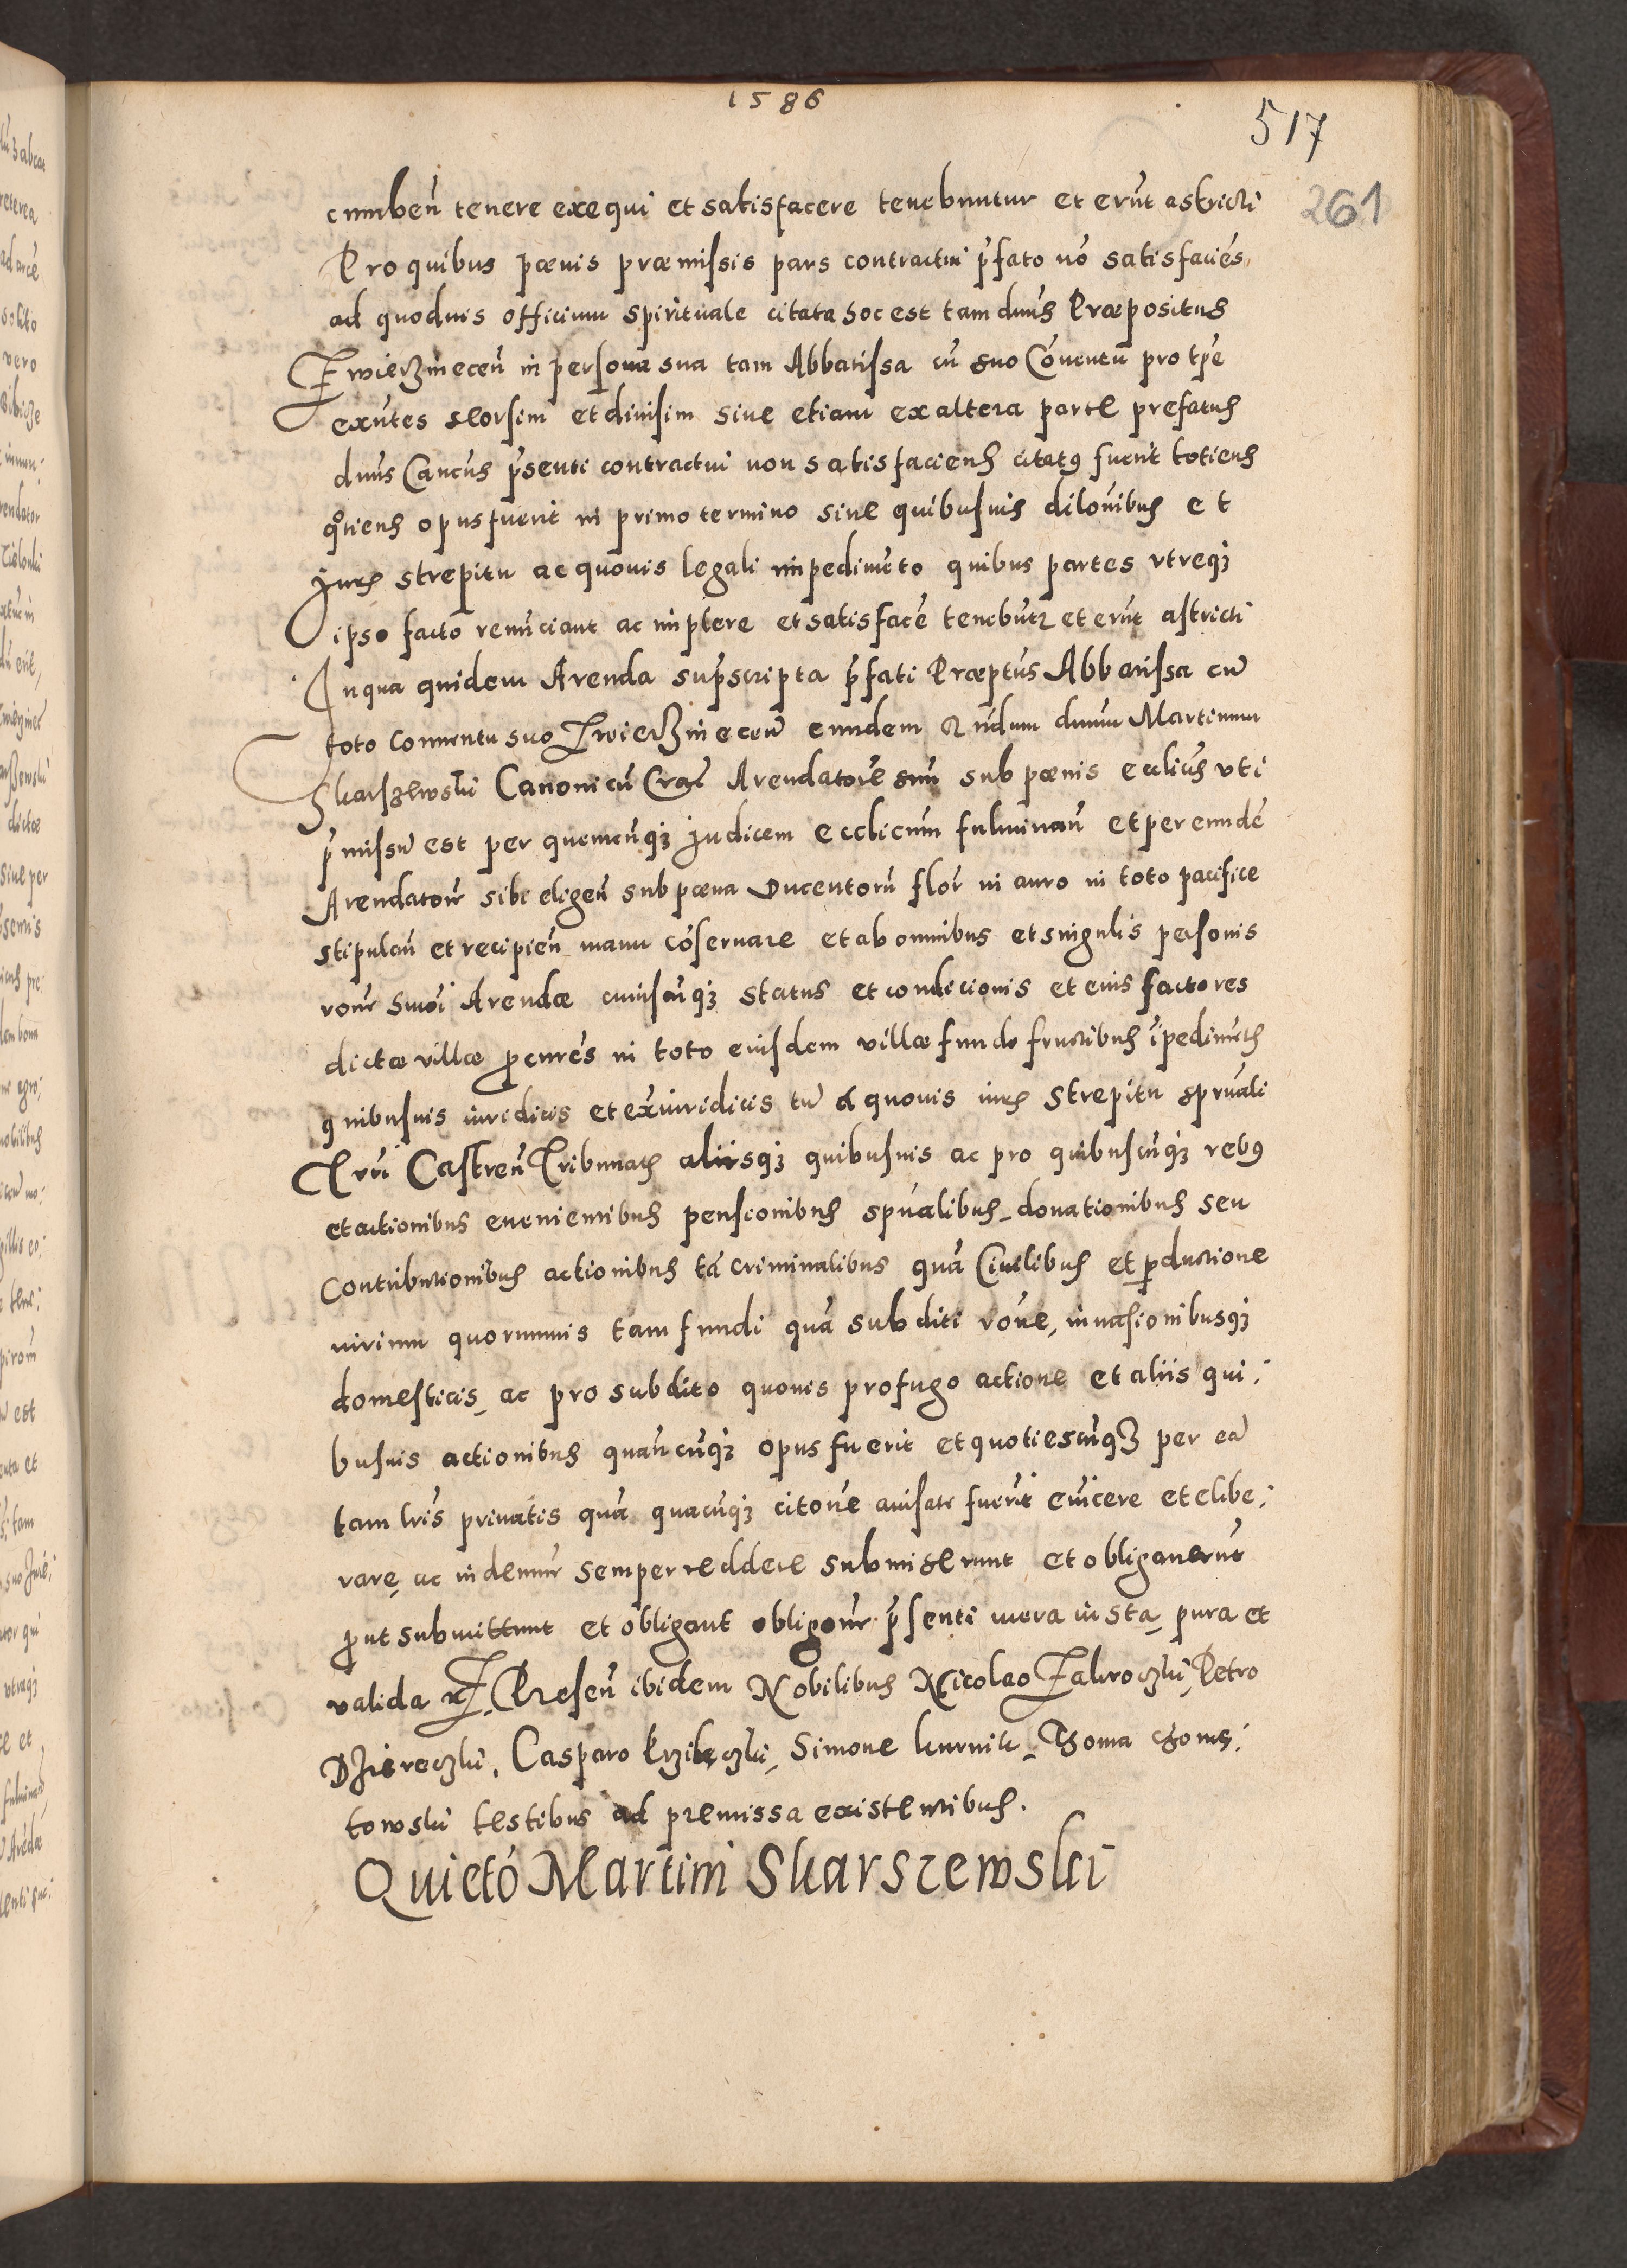 1586
517
261
cumben̄ tenere exequi et satisfacere tenebuntur et erūt astricti
Pro quibus pœnis præmissis pars contractui p̄fato nō satisfaciēs,
ad quoduis officium spirituale citata hoc est tam dnus Præpositus
Zwierzinecen̄ in persona sua tam Abbatissa cū suo Cōuentu pro tp̄e
exn̄tes seorsim et diuisim siue etiam ex altera parte prefatus
dnūs Cancūs p̄senti contractui non satisfaciens citatꝰ fuerit totiens
qͦtiens opus fuerit in primo termino siue quibusuis dilōnibus et
Juris strepitu ac quouis legali impedimēto quibus partes vtreqꝫ
ipso facto renūciant ac implere et satisfacē tenebūtꝛ et erūt astricti
In qua quidem Arenda sup̄scripta p̄fati Præptūs Abbatissa cū
toto conuentu suo Zwierzinecen̄ eundem Rn̄dum dnum Martinum
Skarszewski Canonicū Crac̄ Arendatorē suū sub pœnis eccliċis vti
p̄missū est per quemcūqꝫ Judicem ecclicum fulminan̄ et per eundē
Arendatorē sibi eligen̄ sub pœna Ducentorū flor̄ in auro in toto pacifice
stipulan̄ et recipien̄ manu cōseruare et ab omnibus et singulis personis
rone̅ suoi Arendæ cuiuscūqꝫ status et condicionis et eius factores
dictæ villæ ꝓcurēs in toto eiusdem villæ fundo fructibus īpedimētis
quibusuis iuridicis et exiuridicis tū a quouis iuris strepitu spr̄uali
Trri Castren̄ Tribunatis aliisqꝫ quibusuis ac pro quibuscūqꝫ rebꝰ
et actionibus euenientibus pensionibus spūalibus, donationibus seu
contributionibus actionibus tā criminalibus quā Ciuilibus et ꝓductione
virium quorumuis tam fundi quā subditi rōne, inuasionibusqꝫ
domesticis, ac pro subdito quouis profugo actione et aliis qui:
busuis actionibus quan̄cūqꝫ opus fuerit et quotiescūqꝫ per eū
tam lr̄is priuatis quā quacūqꝫ citōne auisati fuerīt euīcere et elibe:
rare, ac indemn̄ semper reddere submiserunt et obligauerūt
ꝓut submittunt et obligant obligōne p̄senti mera iusta, pura et
valida Presen̄ ibidem Nobilibus Nicolao Zakroczki, Petro
Dziereczki, Casparo Krzibeczki, Simone kurnik, Thoma Goms:
towski testibus ad premissa existentibus.
Quietō Martini Skarszewski